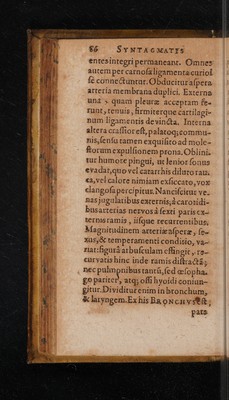 86 SYNTAGMATIS
entes integri permaneant. Omnes
autem per carnosa ligamenta curiosè
se connectuntur. Obducitur aspera
arteria membrana duplici. Externa
una, quam pleuræ acceptam fe-
runt, tenuis, firmiterque cartilagi-
num ligamentis devincta. Interna
altera crassior est, palatoq; commu-
nis, sensu tamen exquisito ad mole-
storum expulsionem prona. Oblini-
tur humore pingui, ut lenior sonus
evadat, quo vel catarrhis diluto rau-
ca, vel calore nimiam exsiccato, vox
clangosa percipitur. Nanciscitur ve-
nas jugulatibus externis, à carotidi-
bus arterias nervos à sexti paris ex-
ternis ramis, iisque recurrentibus.
Magnitudinem arteriæ asperæ, se-
xus, & temperamenti conditio, va-
riat: figurâ arbusculam effingit, re-
curvatis hinc inde ramis distractâ;
nec pulmonibus tantū, sed œsopha-
go pariter, atq; ossi hyoidi coniun-
gitur. Dividitur enim in bronchum,
& laryngem. Ex his BRONCHUS est;
para